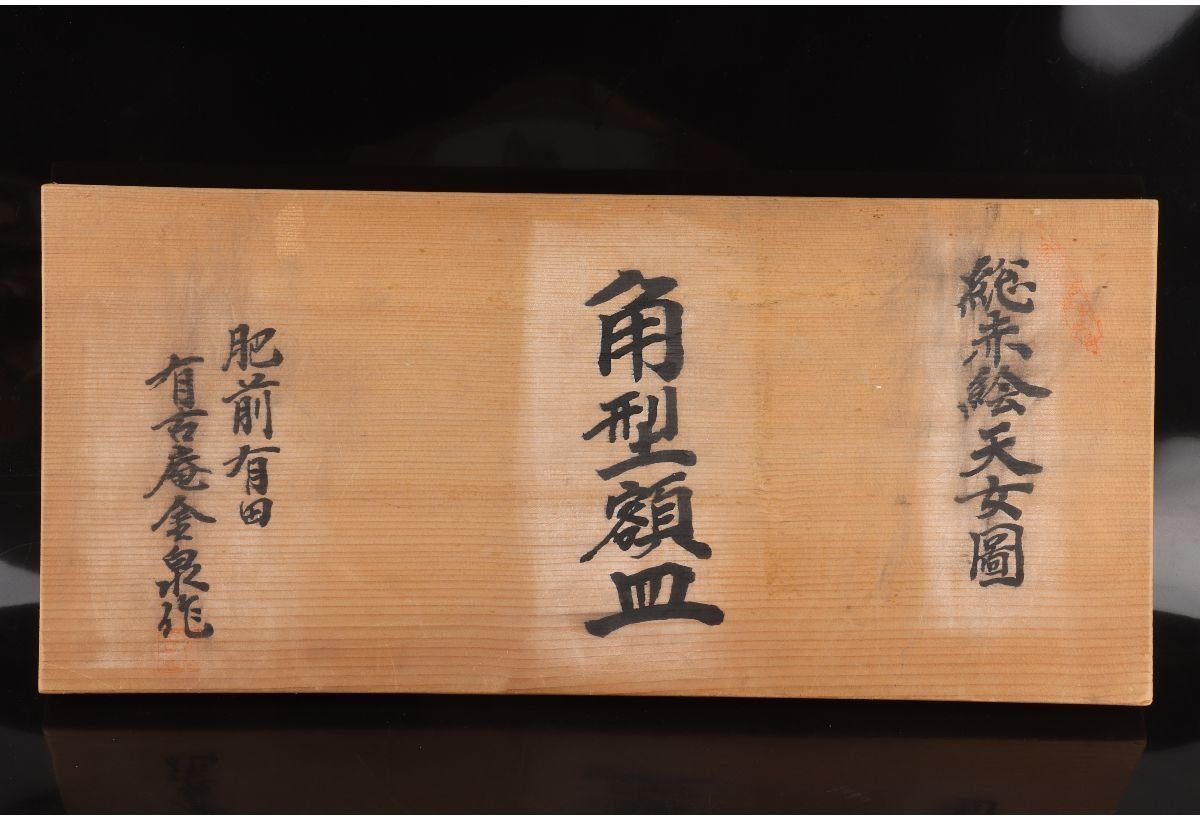 総赤絵天女圖
角型額皿
肥前有田
有古庵金泉作